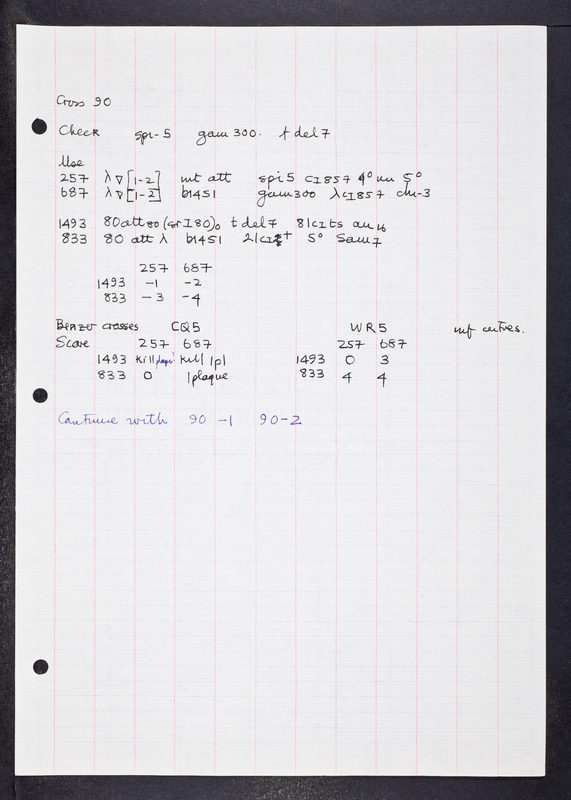 Cross 90
Check spi-5 gam 300. t del 7
Use
257 λ ∇ [1-2] int att spi 5 cI857 4° nu 5°
687 λ ∇ [1-2] b1451 gam 300 λcI857 chi-3
1493 80att80 (srI80)0 t del 7 81cIts am16
833 80 att λ b1451 21cI+ 5° Sam7
257 687
1493 -1 -2
833 -3 -4
Benzer crosses CQ5 WR5 inf centres.
Score 257 687 257 687
1493 Kill Kill 1pl 1493 0 3
833 0 1plaque 833 4 4
Continue with 90-1 90-2